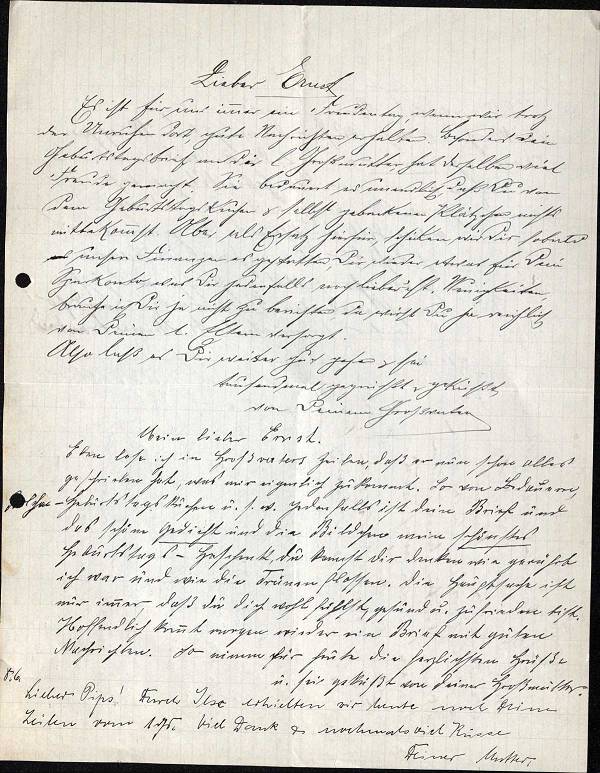 Lieber Ernst
Es ist für uns immer ein Freudentag, wenn wir trotz
der Unruhen dort, gute Nachrichten erhalten. Besonders Dein
Geburtstagsbrief an die l. Großmutter hat derselben viel
Freude gemacht. Sie bedauert es unendlich, daß Du von
dem Geburtstagskuchen & selbst gebackenen Plätzchen nichts
mitbekamst. Aber als Ersatz hierfür, schicken wir Dir sobald
es unsere Finanzen es gestatten, Dir wieder etwas für Dein
Sparkonto, was Dir jedenfalls noch lieber ist. Neuigkeiten
brauche ich Dir ja nicht zu berichten, da wirst Du ja reichlich
von Deinen l. Eltern versorgt.
Also laß es Dir weiter gut gehen & sei
tausendmal gegrüßt & geküßt
von Deinem Großvater
Mein lieber Ernst.
Eben lese ich in Großvaters Zeilen, daß er nun schon alles
geschrieben hat, was mir eigentlich zukommt. So von Bedauern,
Geburtstagskuchen u.s.w. Jedenfalls ist dein Brief und
das schöne Gedicht und die Bildchen mein schönstes
Geburtstags-Geschenk, du kannst dir denken wie gerührt
ich war und wie die Tränen flossen. Die Hauptsache ist
nur immer, daß du dich wohl fühlst, gesund u. zufrieden bist.
Hoffendlich kommt morgen wieder ein Brief mit guten
Nachrichten. So nimm für heute die herzlichsten Grüße
u. sei geküßt von deiner Großmutter.
8.6.
Lieber Pips! Durch Ilse erhielten wir heute noch Deine
Zeilen vom Viel Dank & nochmals viel Küsse
Deiner Mutter.